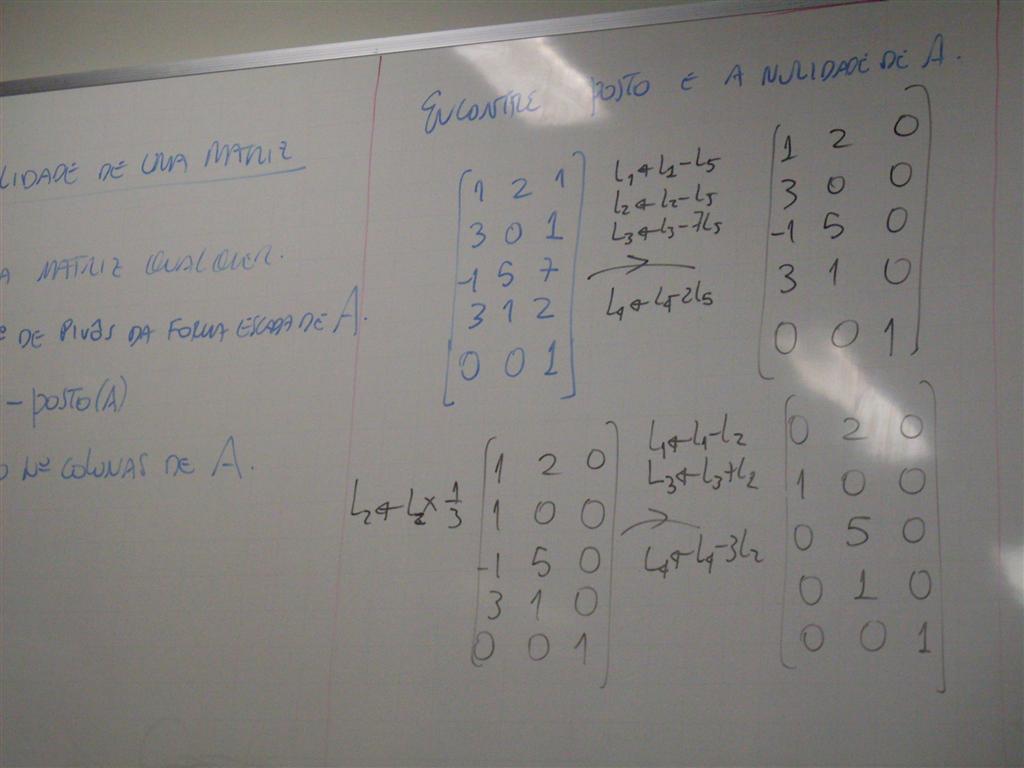 LIDADE DE UMA MATRIZ
A MATRIZ QUALQUER.
º DE PIVÔS DA FORMA ESCADA DE A.
- POSTO(A)
O Nº COLUNAS DE A.
ENCONTRE POSTO E A NULIDADE DE A.
1 2 1
3 0 1
-1 5 7
3 1 2
0 0 1
L1 ← L1 - L5
L2 ← L2 - L5
L3 ← L3 - 7L5
L4 ← L4 - 2L5
1 2 0
3 0 0
-1 5 0
3 1 0
0 0 1
L2 ← L2 × 1/3
1 2 0
1 0 0
-1 5 0
3 1 0
0 0 1
L1 ← L1 - L2
L3 ← L3 + L2
L4 ← L4 - 3L2
0 2 0
1 0 0
0 5 0
0 1 0
0 0 1